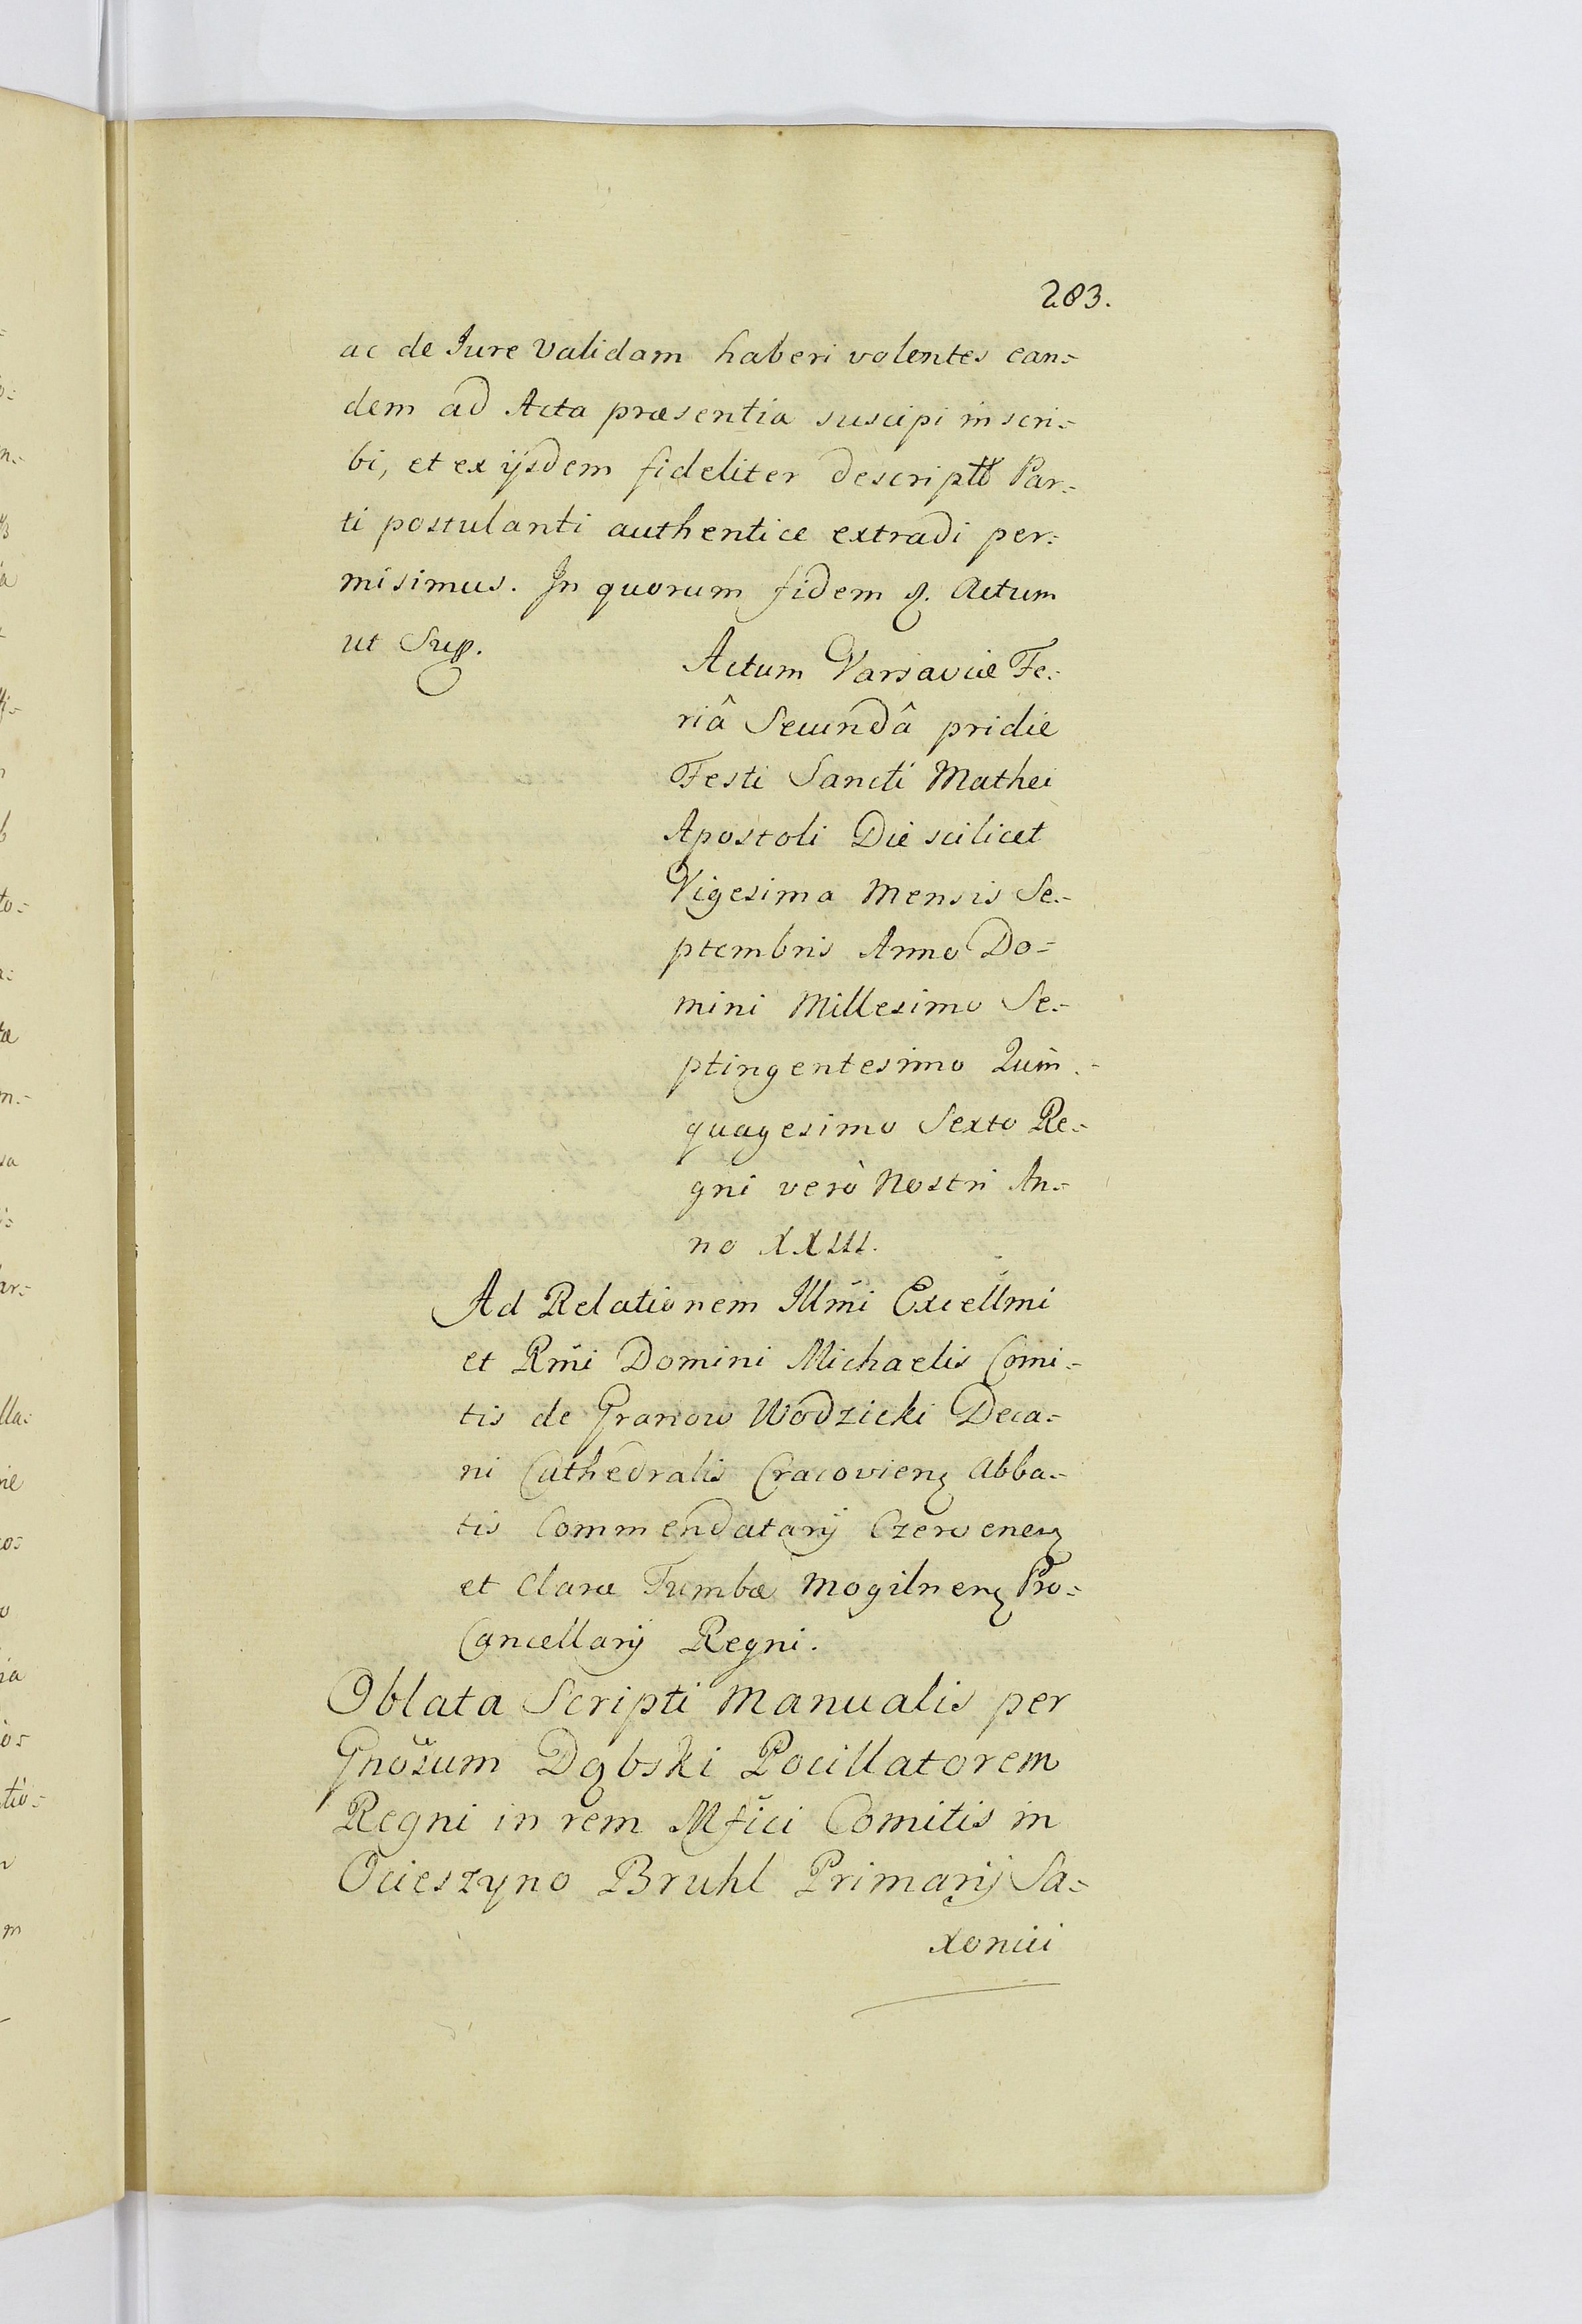 283.
ac de Iure validam haberi volentes ean=
dem ad Acta præsentia suscipi inscri=
bi, et ex ijsdem fideliter descriptt Par=
ti postulanti authentice extradi per=
misimus. In quorum fidem &. Actum
ut Sup.
Actum Varsaviæ Fe=
riâ Secundâ pridie
Festi Sancti Mathei
Apostoli Die scilicet
Vigesima Mensis Se=
ptembris Anno Do=
mini Millesimo Se=
ptingentesimo Quin=
quagesimo Sexto Re=
gni verò Nostri An=
no XXIII.
Ad Relationem Illmi Excellmi
et Rmi Domini Michaelis Comi=
tis de Granow Wodzicki Deca=
ni Cathedralis Cracovien̄ Abba=
tis Commendatarij Czerwenen̄
et Claræ Tumbæ Mogilnen̄ Pro=
Cancellarij Regni.
Oblata Scripti Manualis per
Gnosum Dąbski Pocillatorem
Regni in rem Mfici Comitis in
Ocieszyno Bruhl Primarij Sa=
xonici